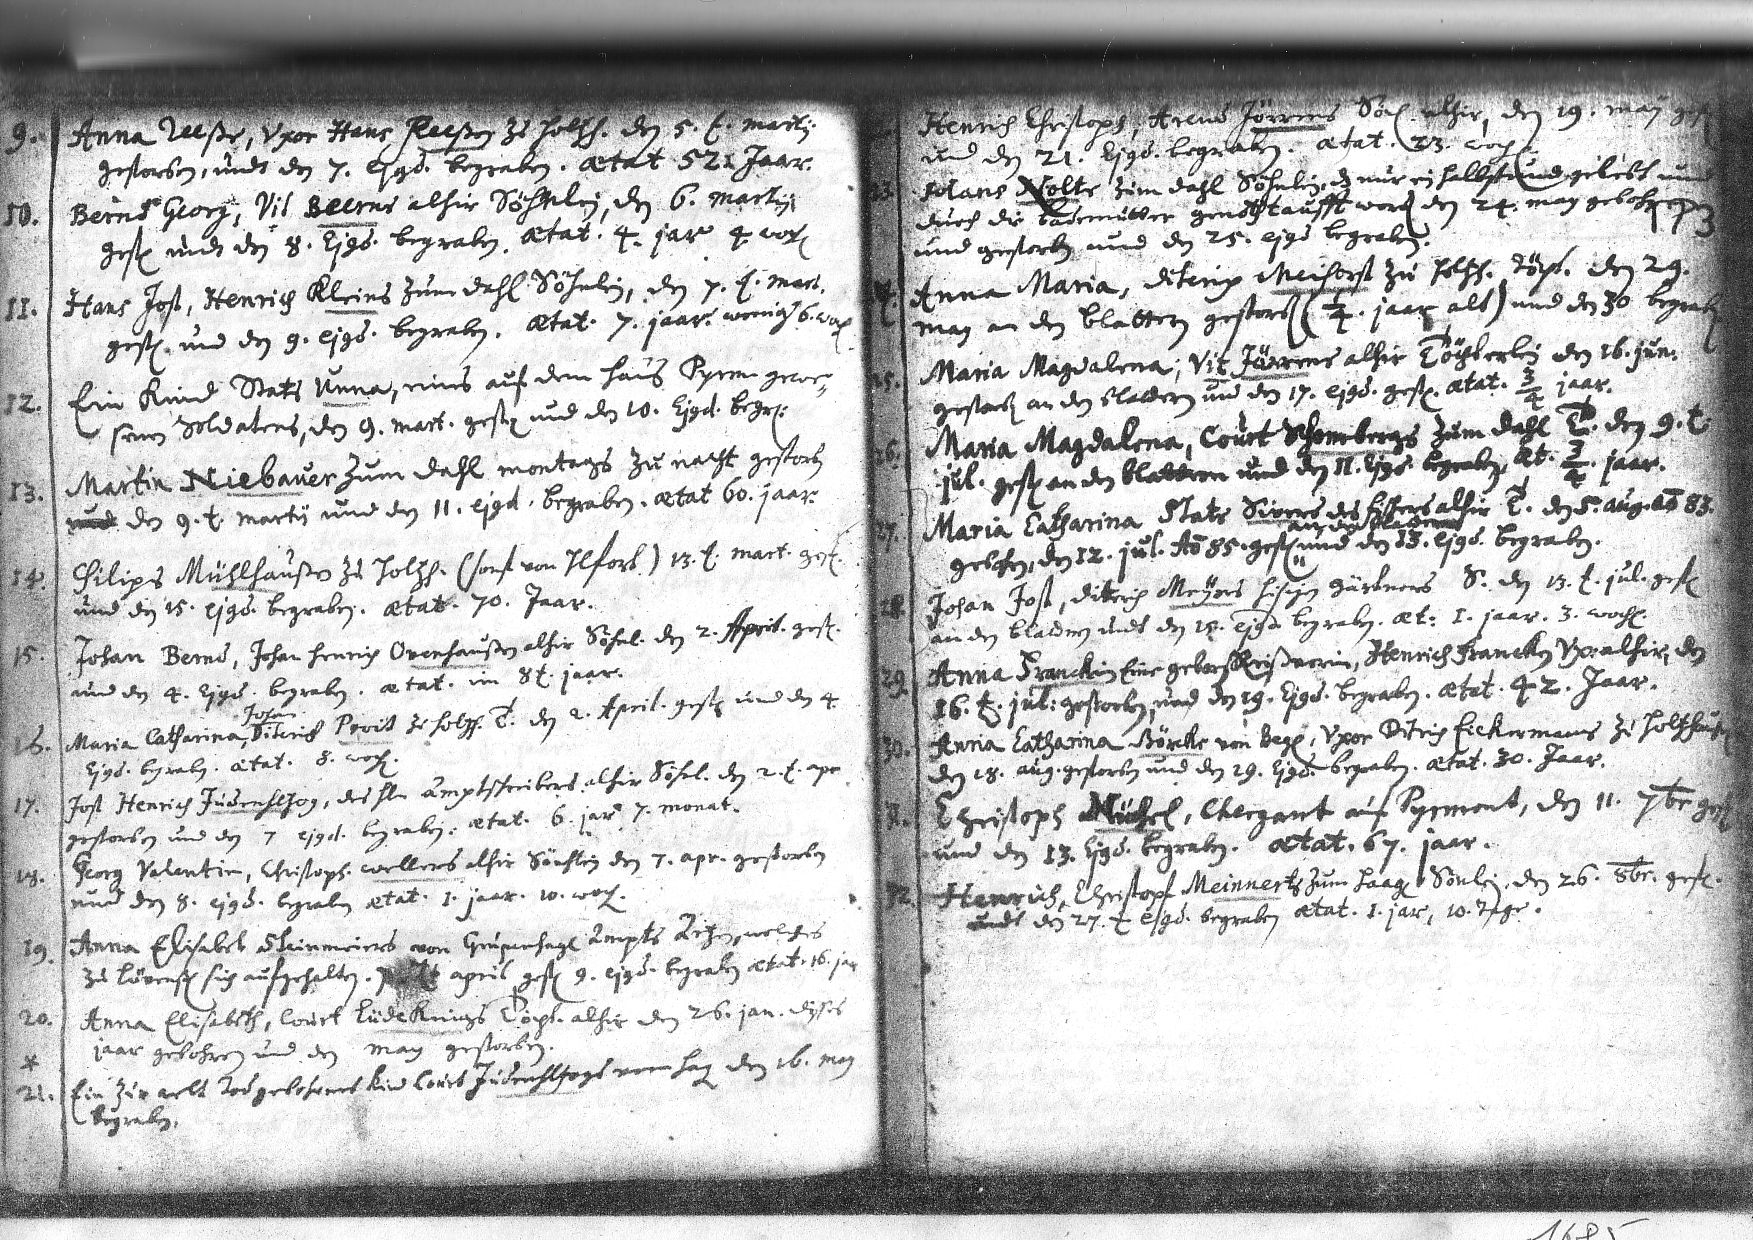 9. Anna Reeße, Uxor Hans Reeßen zu Holtzh. den 5. t. martij
gestorben, undt den 7. ejgd. begraben. ætat 52 Jaar.
10. Bernd Georg, Vit Beerns alhir Söhnlej, den 6. martij
gest und den 8. Ejgd. begraben. ætat. 4. jar 4 woch
11. Hans Jost, Henrich Kleins zum dahl Söhnlein, den 7. t. mart.
gest. und den 9. ejgd. begraben. ætat. 7. jaar. wenig 6. woch
12. Ein Kind Stats Unna, eines auf dem haus Pyrm. gewe-
senen Soldatens, den 9. mart. gest und den 10. Ejgd. begr.
13. Martin Niebauer zum dahl montags zu nacht gestorb
den 9. t. martij und den 11. ejgd. begraben. ætat 60. jaar.
14. Philips Mühlhaußen zu Holtzh. (sonst von ) 13. t. mart. gest.
und den 15. ejgd. begraben. ætat. 70. Jaar.
15. Johan Bernd, Johan Henrich Ovenhaußen alhir Söhnl. den 2. April. gest.
und den 4. Ejgd. begraben. ætat. im 8t. jaar.
Johan
16. Maria Catharina, Diterich zu Holtzh. T. den 2. April. gest und den 4
Ejgd. begraben. ætat. 8. woch.
17. Jost Henrich Judenhertzog, des Hn amptschreibers alhir Söhnl. den 2. t. apr
gestorben und den 7 ejgd. begraben. ætat. 6. jar 7. monat.
18. Georg Valentin, Christoph. Wellers alhir Söhnlein den 7. apr. gestorben
und den 8. ejgd. begraben ætat. 1. jaar. 10. woch.
19. Anna Elisabet Steinmeiers von Grupenhagen Ampts welches
zu sich aufgehalten. april gest 9. ejgd. begraben ætat. 16. jar
20. Anna Elisabeth, Court Lüdekings Töcht. alhir den 26. jan. dises
jaar gebohren und den may gestorben.
*
21. Ein zur welt Todgebohrnes Kind Court Judenhertzogs vom Hag den 16. may
begraben.
Henrich Christoph, Arend Jörrens Söhn. alhir, den 19. may gest
und den 21. Ejgd. begraben. ætat. 23. woch.
23. Hans Nolte zum dahl Söhnlein, so nur ein halb stund gelebt und
durch die bademutter genohttaufft word den 24. may gebohren
und gestorben und den 25. ejgd begraben.
Anna Maria, Meihorst zu Holtzh. Töcht. den 29.
may an den blattern gestorb (1/4. jaar alt) und den 30 begrab
25. Maria Magdalena, Vit Jörrens alhir Töchterlein den 16. jun.
gestorb an den bladern und den 17. ejgd. gest. ætat. 3/4 jaar.
26. Maria Magdalena, Court Schombergs zum dahl T. den 9. t.
jul. gest an den blattern und den 11. Ejgd. begraben, æt. 3/4. jaar.
27. Maria Catharina Stats Sivers des alhir T. den 5. aug. ao 83.
an den bladern
gebohren, den 12. jul. Ao 85. gest und den 13. ejgd. begraben.
28. Johan Jost, Diterich Meÿers hisigen gärtners S. den 13. t. jul. gest
an den bladern undt den 15. ejgd. begraben. æt: 1. jaar. 3. woch.
29. Anna Franckin Eine gebohrn Henrich Francken Ux: alhir, den
16. t. jul: gestorben, und den 19. Ejgd. begraben. ætat. 42. Jaar.
30. Anna Catharina Börcke von Uxor Ditrich Eickermans zu Holtzhaus
den 18. aug. gestorben und den 19. Ejgd. begraben. ætat. 30. Jaar.
31. Christoph Chergant auf Pyrmont, den 11. 7br gest
und den 13. Ejgd. begraben. ætat. 67. jaar.
32. Henrich Christopf Meinnerts zum haag Sönlein, den 26. 8br. gest.
undt den 27. t ejgd. begraben ætat. 1. jar, 10. Tage.
1685